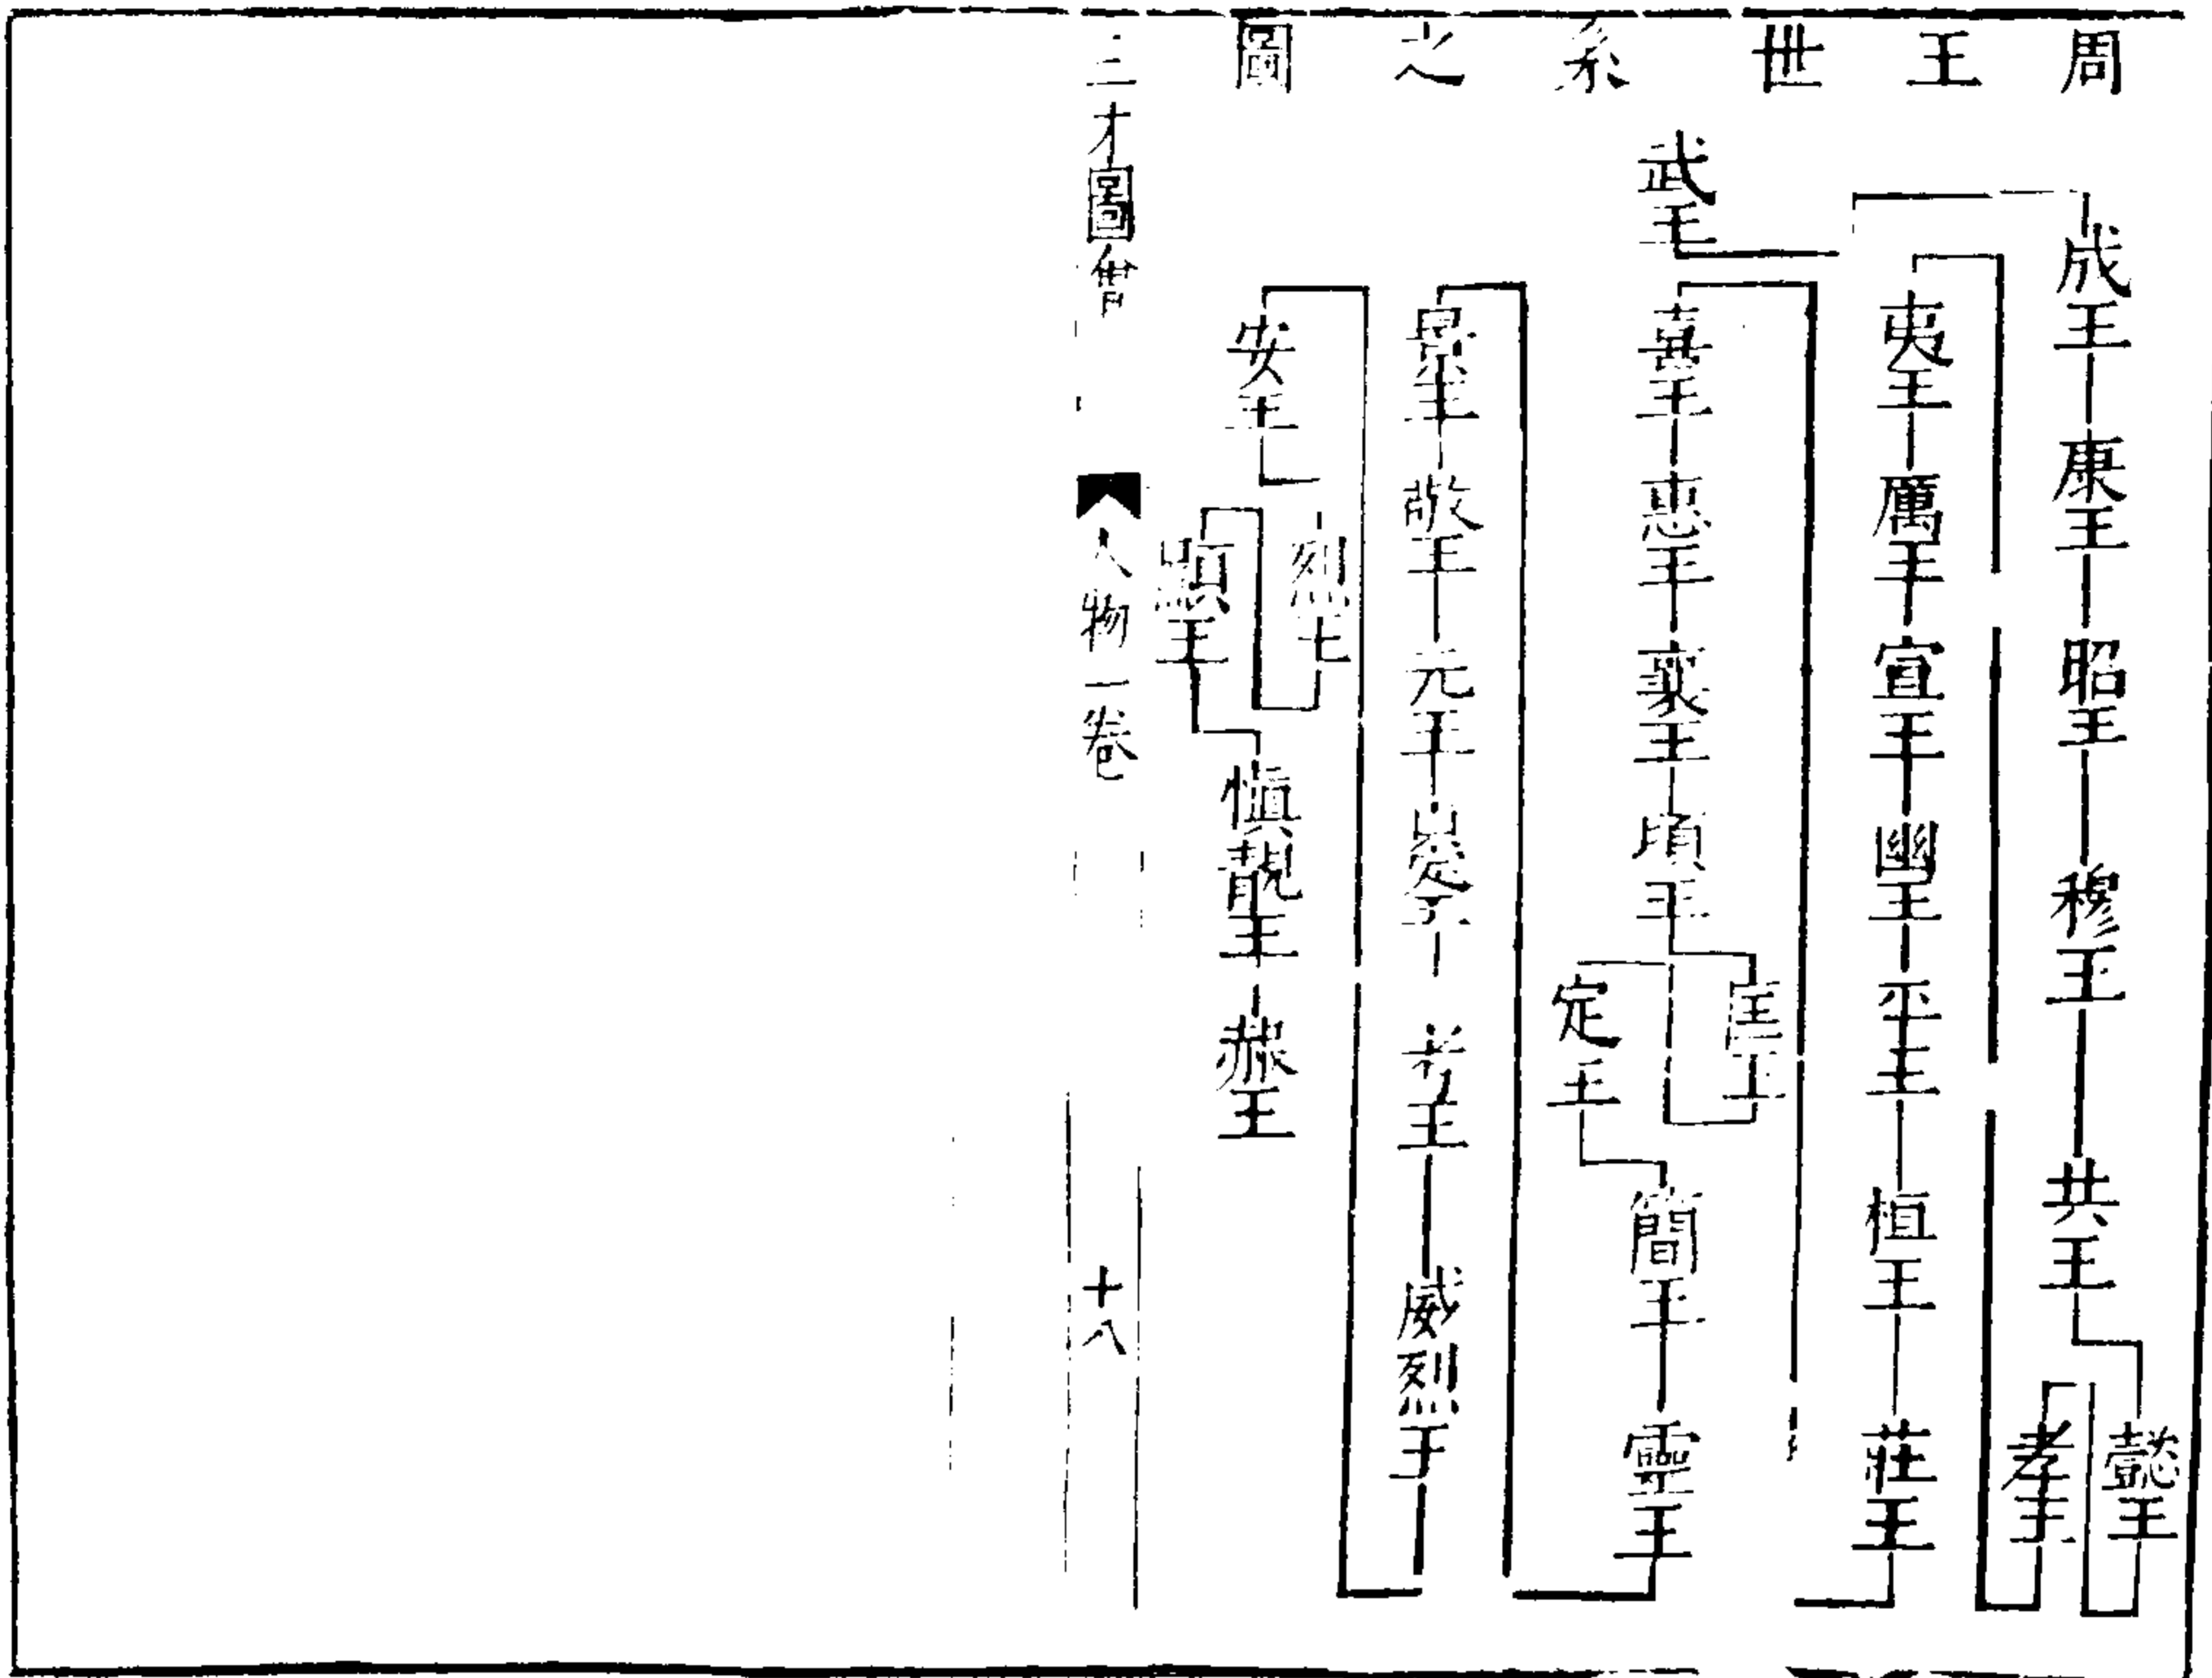 周王世系之圖
武王
成王 康王 昭王 穆王 共王 懿王 孝王
夷王 厲王 宣王 幽王 平王 桓王 莊王
惠王 襄王 頃王 匡王 定王 簡王 靈王
景王 敬王 元王 考王 威烈王
安王 烈王 顯王 慎靚王 赧王
三才圖會
人物一卷
十八